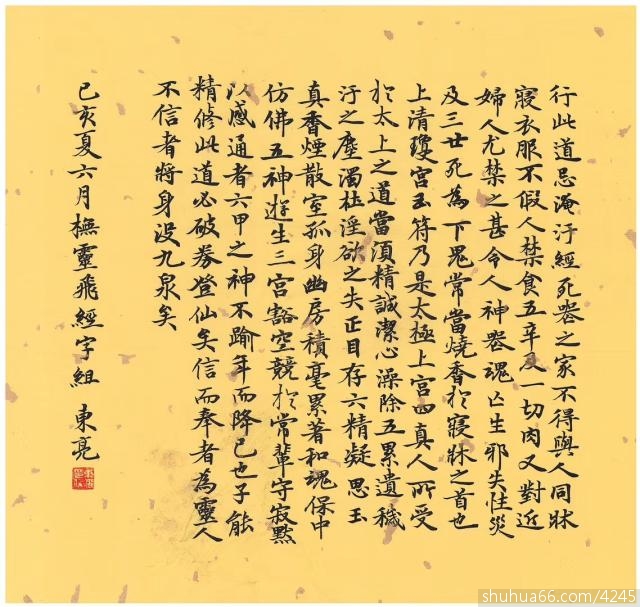 行此道忌淹汙經死喪之家不得與人同牀
寢衣服不假人禁食五辛及一切肉又對近
婦人尤禁之甚令人神喪魂亡生邪失性災
及三世死為下鬼常當燒香於寢牀之首也
上清瓊宮玉符乃是太極上宮四真人所受
於太上之道當須精誠潔心澡除五累遺穢
汙之塵濁杜淫欲之失正目存六精凝思玉
真香煙散室孤身幽房積毫累著和魂保中
仿佛五神遊生三宮豁空競於常輩守寂默
以感通者六甲之神不踰年而降己也子能
精修此道必破券登仙矣信而奉者為靈人
不信者將身沒九泉矣
己亥夏六月橅靈飛經字組 東亮
shuhua66.com/4245